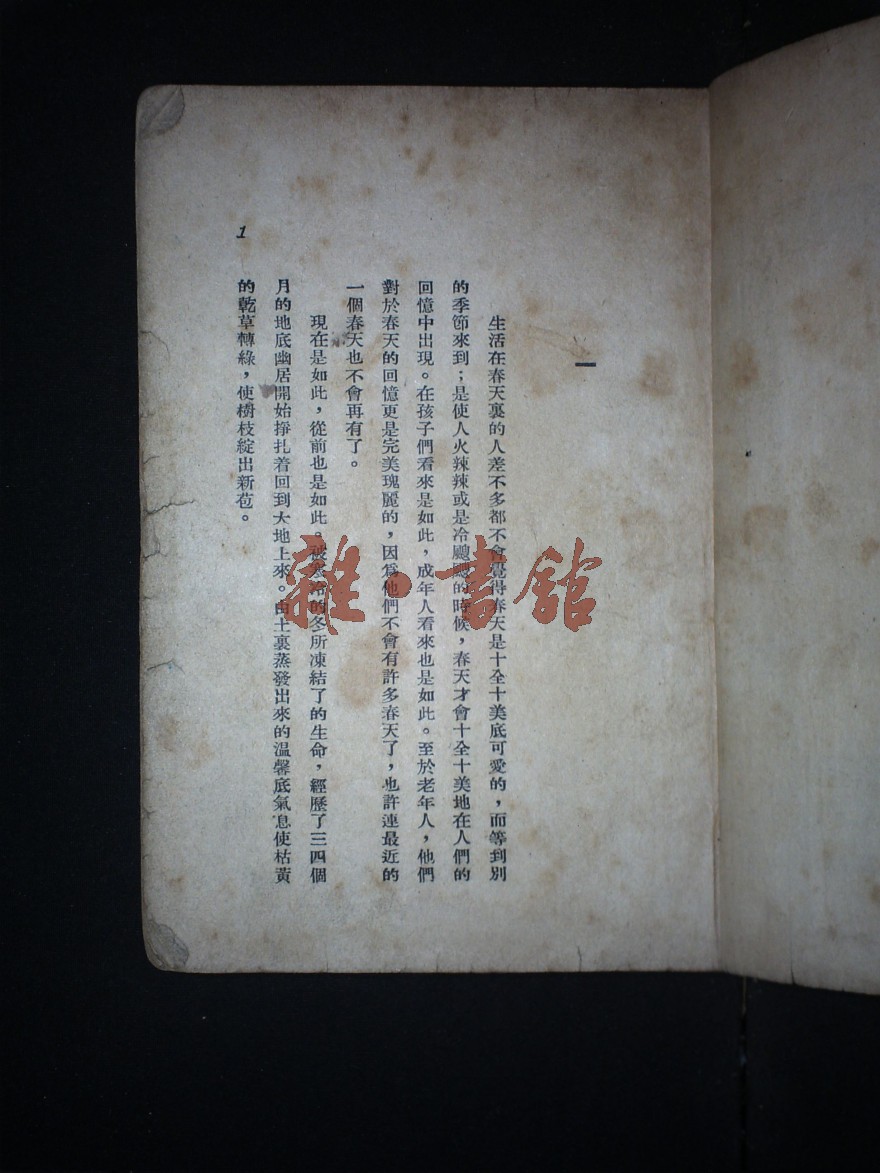 一
生活在春天裏的人差不多都不會覺得春天是十全十美底可愛的，而等到別
的季節來到；是使人火辣辣或是冷颼颼的時候，春天才會十全十美地在人們的
回憶中出現。在孩子們看來是如此，成年人看來也是如此。至於老年人，他們
對於春天的回憶更是完美瑰麗的，因爲他們不會有許多春天了，也許連最近的
一個春天也不會再有了。
現在是如此，從前也是如此。被寒冷的冬所凍結了的生命，經歷了三四個
月的地底幽居開始掙扎着回到大地上來。由土裏蒸發出來的温馨底氣息使枯黃
的乾草轉綠，使樹枝綻出新苞。
1
雜·書館